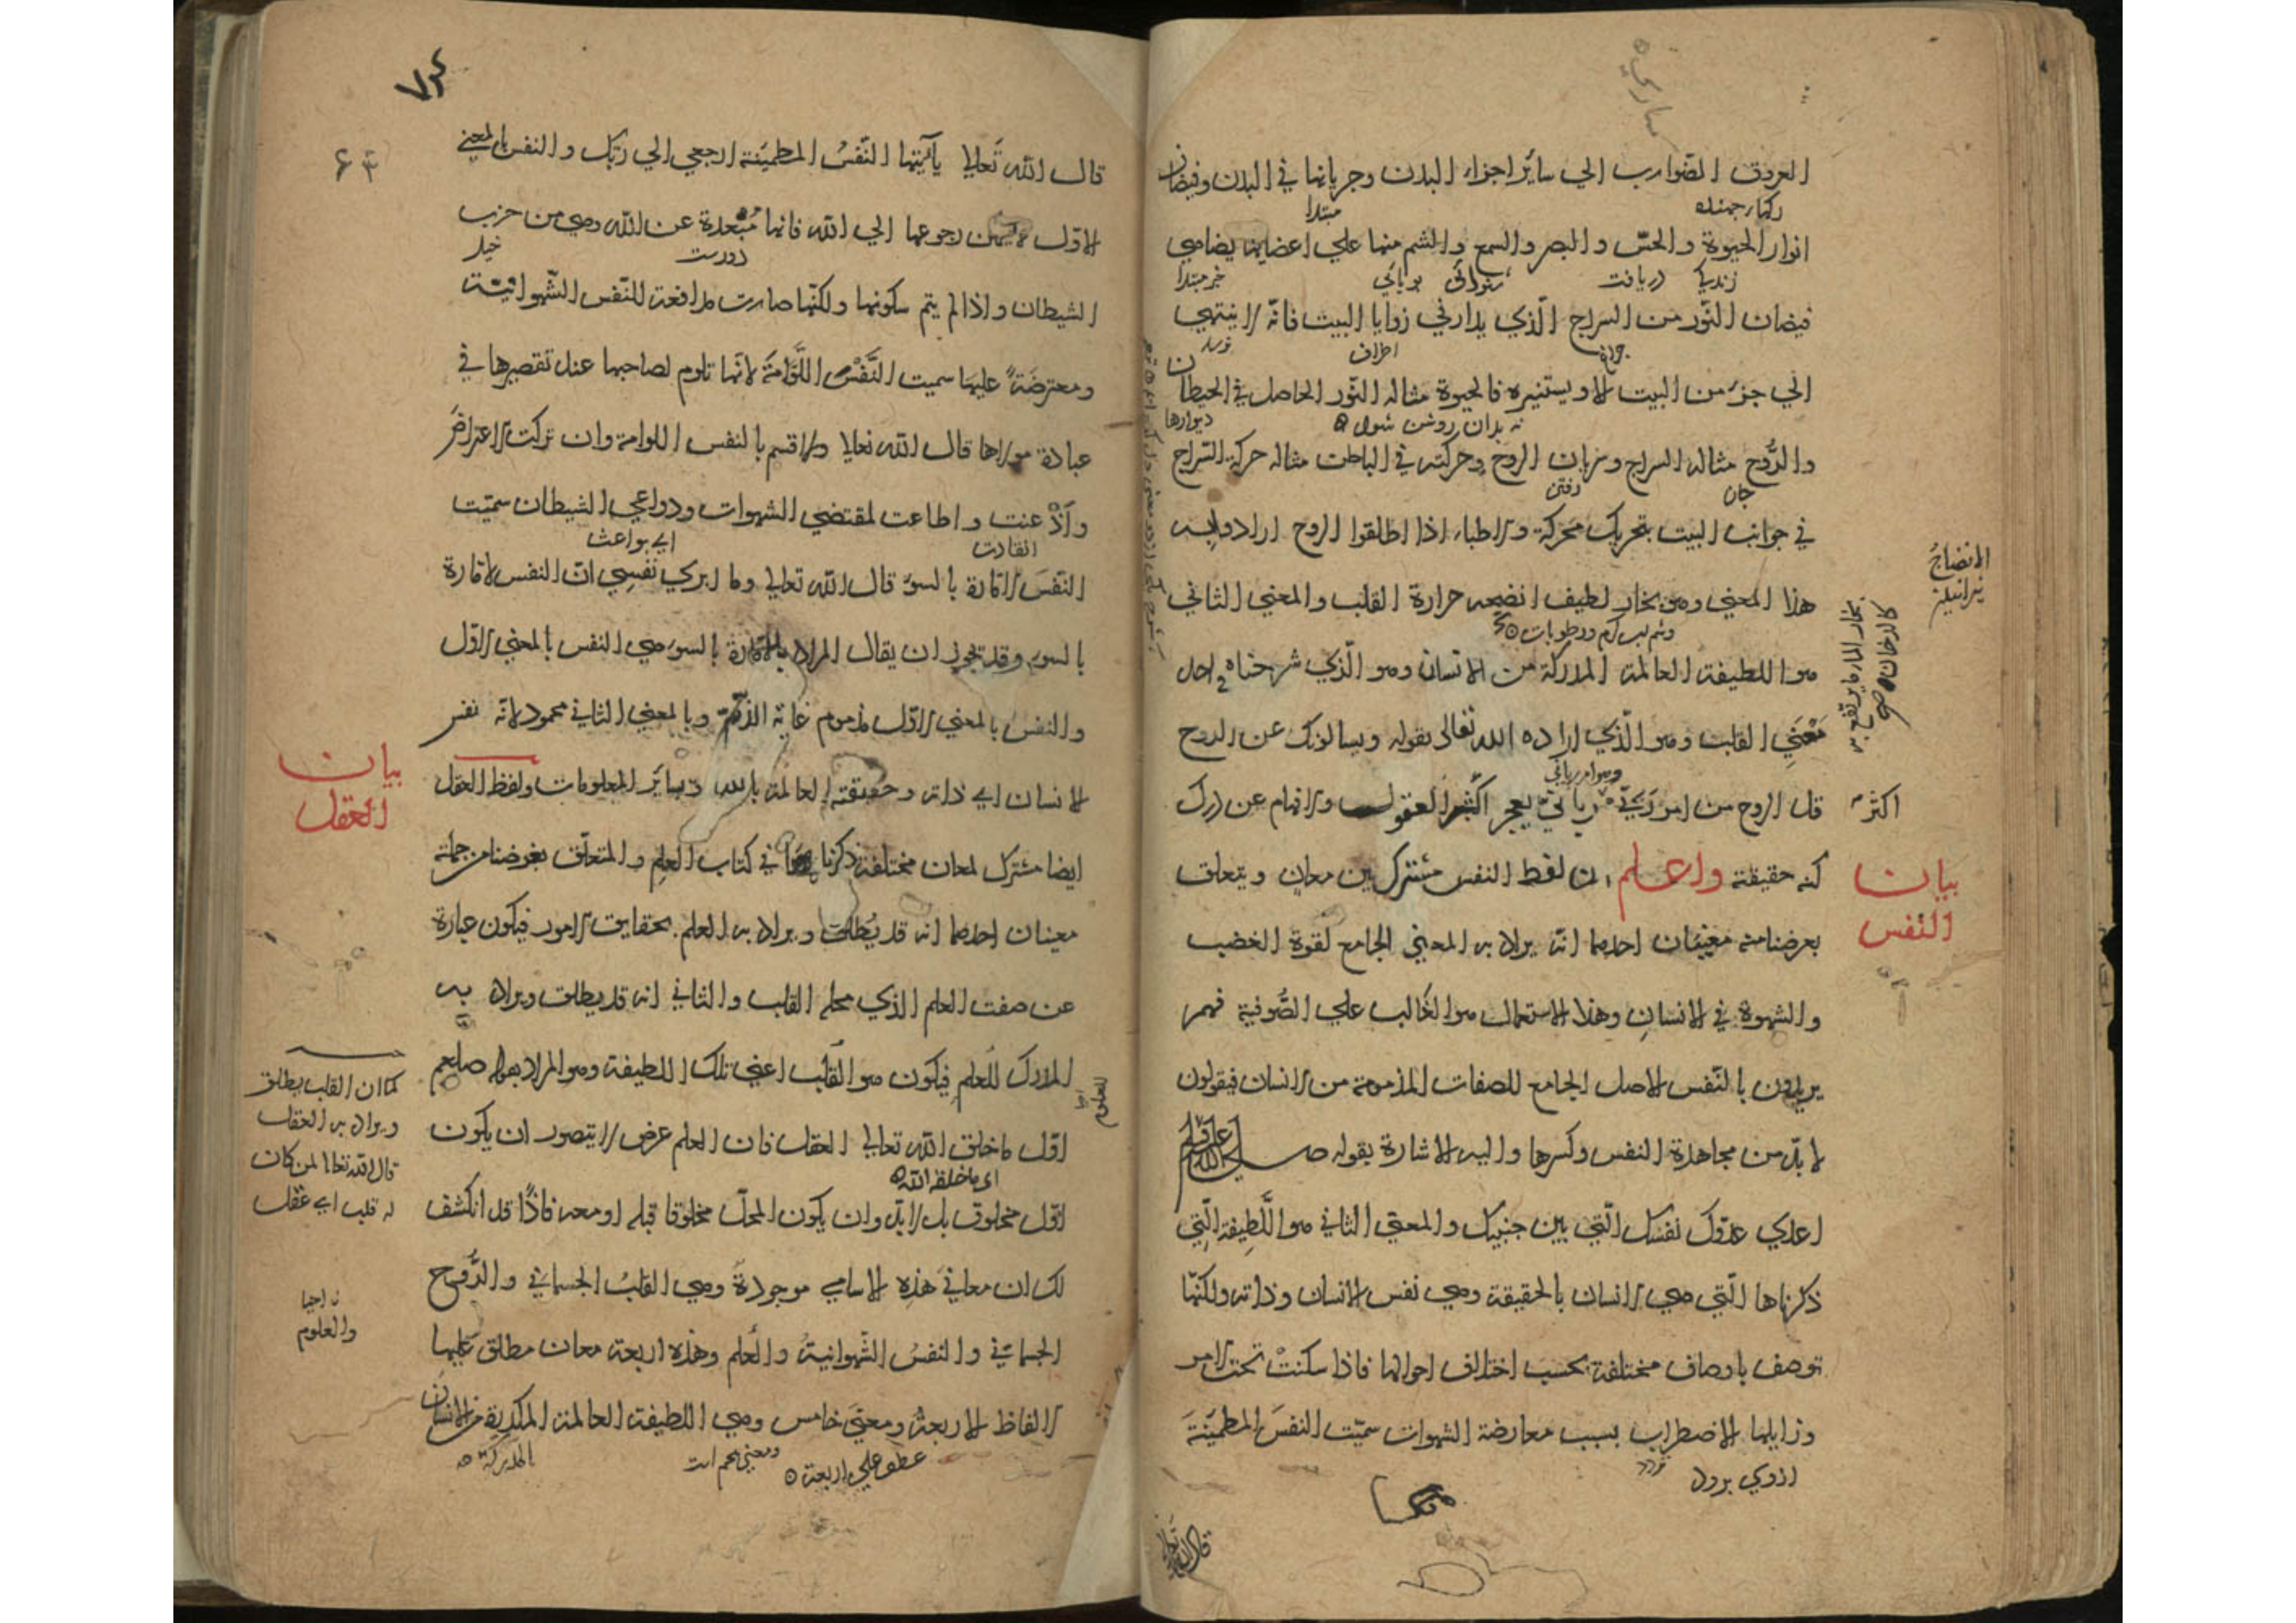 العروق الضوارب الي سائر اجزاء البدن وجريانها في البدن وفيضان
مبتدا
انوار الحيوة والحسّ والبصر والسمع والشم منها علي اعضايها يضاهي
زندگي دريافت شنوائي بويائي خبر مبتدا
فيضان النّور من السراج الّذي يدار في زوايا البيت فانّه لا ينتهي
اطراف
الي جزء من البيت الا ويستنير به فالحيوة مثاله النّور الحاصل في الحيطان
نه بدان روشن شود ديوارها
والرُّوح مثاله السراج وسريان الروح وحركته في الباطن مثاله حركة السّراج
جان رفتن
في جوانب البيت بتحريك محركة والاطباء اذا اطلقوا الروح ارادوا به
هذا المعني وهو بخار لطيف انضجه حرارة القلب والمعني الثاني
هو اللطيفة العالمة المدركة من الانسان وهو الّذي شرحناه في احد
مَعْنَيي القلب وهو الّذي اراده الله تعالى بقوله ويسالونك عن الروح
قل الروح من امر ربّي ربانيّ يعجز اكثر العقول والافهام عن درك
اكثر
كنه حقيقته واعلم ان لفظ النفس مشترك بين معان ويتعلق
بيان
النفس
بغرضنا منه معنيان احدهما انّه يراد به المعني الجامع لقوة الغضب
والشهوة في الانسان وهذا الاستعمال هو الغالب علي الصُّوفية فهم
يريدون بالنّفس الاصل الجامع للصفات المذمومة من الانسان فيقولون
لا بدّ من مجاهدة النفس وكسرها واليه الاشارة بقوله صلي الله عليه وسلم
اعدي عدّوك نفسك الّتي بين جنبيك والمعني الثاني هو اللَّطِيفة الّتِي
ذكرناها الّتي هي الانسان بالحقيقة وهي نفس الانسان وذاته ولكنّها
توصف باوصاف مختلفة بحسب اختلاف احوالها فاذا سكنتْ تحت الامر
وزايلها الاضطراب بسبب معارضة الشهوات سمّيت النفسَ المطمئنّةَ
قال الله تعالي
قال الله تَعالي يآايّتها النّفسُ المطمئنة ارجعي الي ربّك والنفس بالمعني
الاوّل لا رجوعها الي الله فانها مُبْعَدة عن الله وهي من حزب
خيل
الشيطان واذا لم يتم سكونها ولكنّها صارت مدافعة للنّفس الشّهوانيّة
ومعترضَةً عليها سميت النَّفْسَ اللَّوّامَةَ لانّها تلوم لصاحبها عند تقصيرها في
عبادة مولاها قال الله تعالي ولا اقسم بالنفس اللوامة وان تركت الاعتراضَ
واَذْعنت واطاعت لمقتضي الشهوات ودواعي الشيطان سمّيت
انقادت اي بواعث
النّفسَ الامّارة بالسوء قال الله تعالي وما ابري نفسِي انّ النفس لامّارة
بالسوء وقد يجوز ان يقال المراد بالامّارة بالسوء هي النفس بالمعني الاوّل
والنفس بالمعني الاوّل مذموم غاية الذمّ وبالمعني الثاني محمود لانّه نفس
الانسان اي ذاته وحقيقته العالمة بالله وسائر المعلومات ولفظ العقل
بيان
العقل
ايضا مشترك لمعان مختلفة ذكرناها في كتاب العلم والمتعلّق بغرضنا من جملته
معنيان احدهما انه قد يُطلق ويراد به العلم بحقايق الامور فيكون عبارة
عن صفت العلم الذي محله القلب والثاني انه قد يطلق ويراد به
المدرك للعلم فيكون هو القلب اعني تلك اللطيفة وهو المراد بقوله صلعم
كما ان القلب يطلق
ويراد به العقل
قال الله تعالي لمن كان
له قلب اي عقل
اوّل ما خلق الله تعالي العقل فان العلم عرض لا يتصور ان يكون
اي ما خلقه الله
اوّل مخلوق بل لا بدّ وان يكون المحلّ مخلوقا قبله او معه فاذًا قد انكشف
لك ان معانيَ هَذِه الاسامي موجودةٌ وهي القلبُ الجسمانيّ والرُّوح
الجسمانيّ والنفسُ الشّهوانيةُ والعلم وهذه اربعة معان مطلق عليها
والعلوم
الالفاظ الاربعةُ ومعنيً خامس وهي اللطيفة العالمة المدركة من الانسان
عطف علي اربعة ومعني پنجم است المدركة